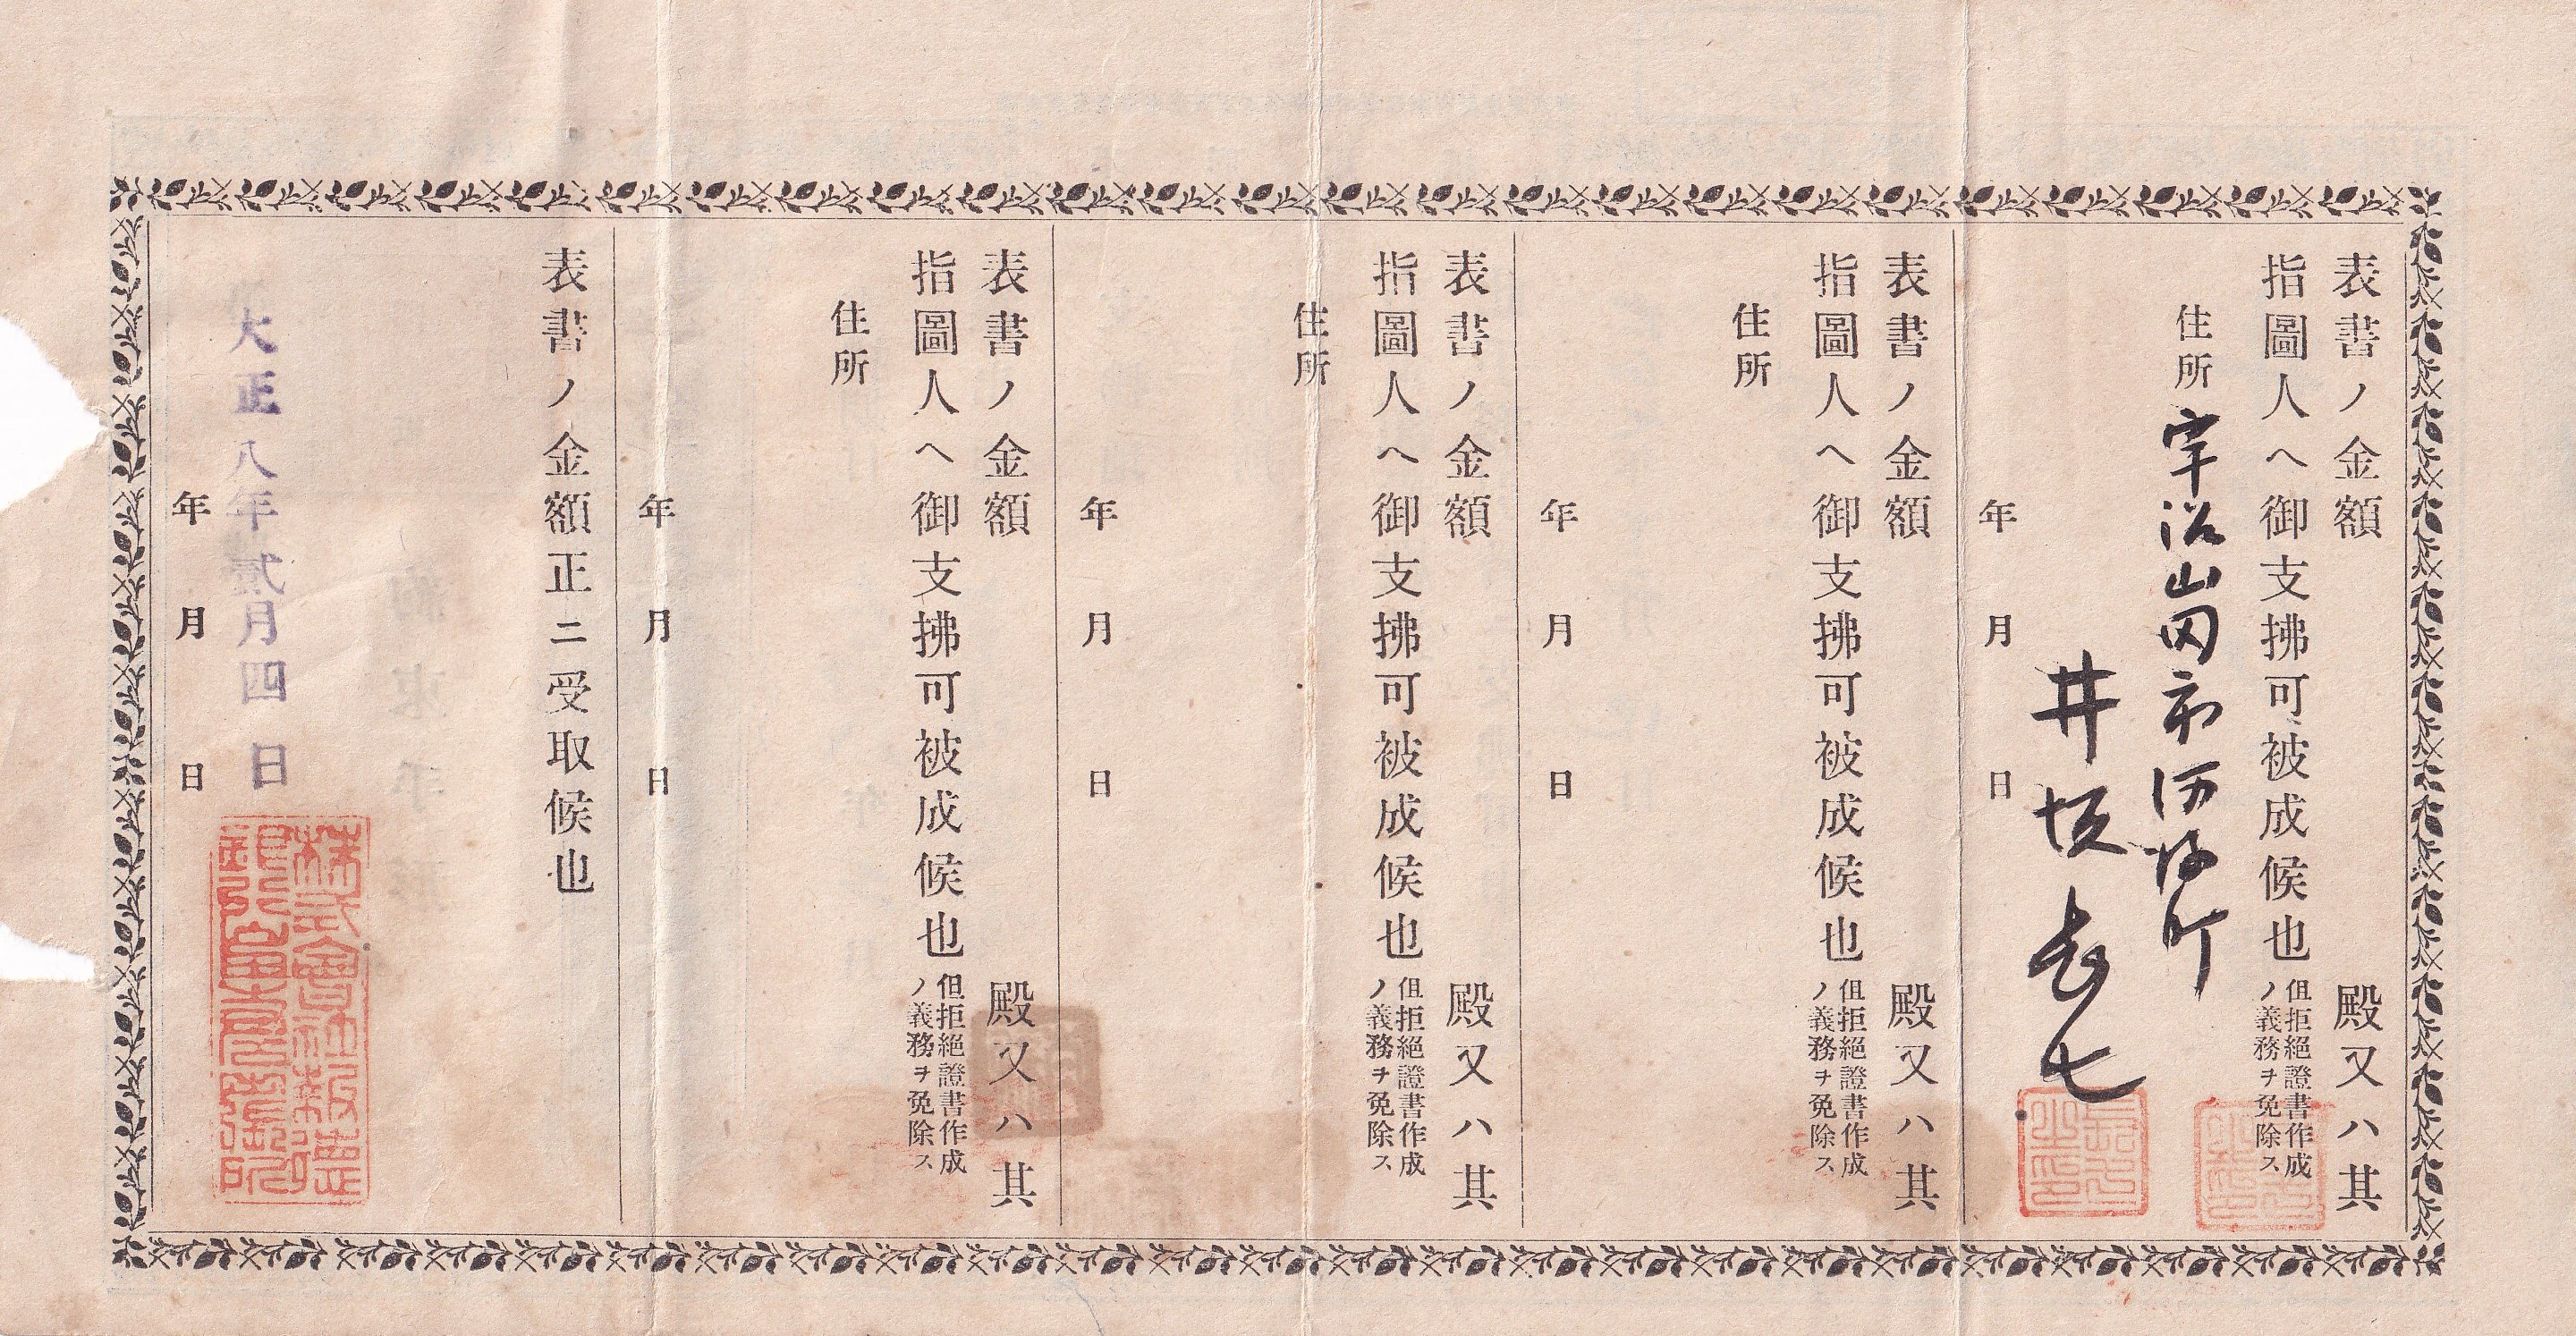 表書ノ金額
殿又ハ其
指圖人ヘ御支拂可被成候也
但拒絕證書作成
ノ義務ヲ免除ス
住所
宇治山田市河崎町
井坂
年 月 日
表書ノ金額
殿又ハ其
指圖人ヘ御支拂可被成候也
但拒絕證書作成
ノ義務ヲ免除ス
住所
年 月 日
表書ノ金額
殿又ハ其
指圖人ヘ御支拂可被成候也
但拒絕證書作成
ノ義務ヲ免除ス
住所
年 月 日
表書ノ金額
殿又ハ其
指圖人ヘ御支拂可被成候也
但拒絕證書作成
ノ義務ヲ免除ス
住所
年 月 日
表書ノ金額正ニ受取候也
大正八年貳月四日
年 月 日